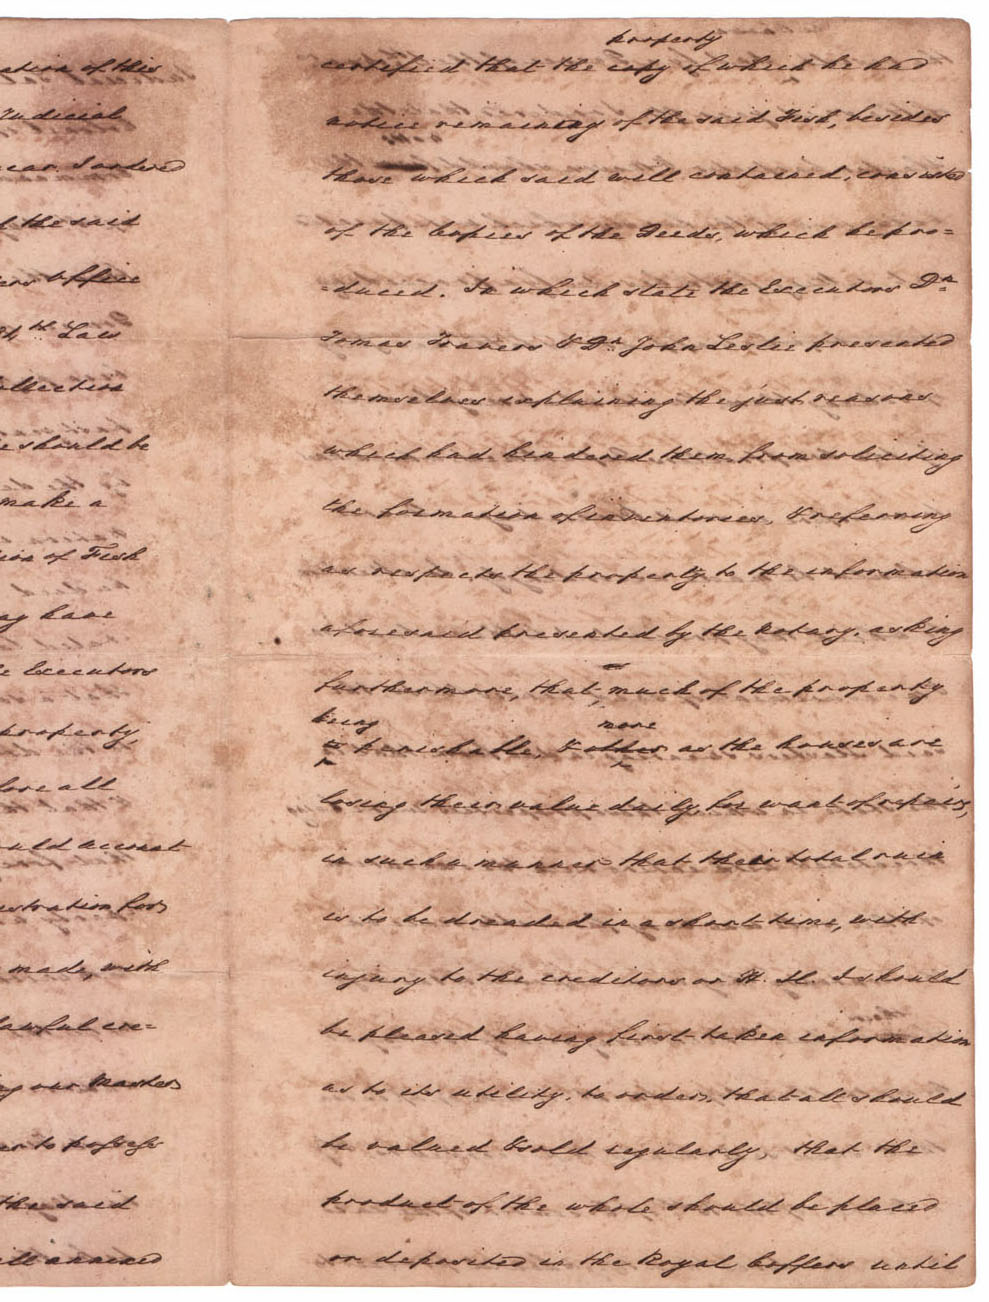 ation of this
Judicial
year I ordered
f the said
ers Office
84th Law
ollection
e should be
make a
ion of Fish
ay have
e Executors
property,
fore all
uld account
istration for
made, with
lawful cre=
ng our Masters
er to possess
the said
ill annexed
property
certified that the copy of which he had
notice remaining of the said Fish, besides
those which said will contained, consisted
of the Copies of the Deeds, which he pro=
=duced. In which state the Executors Dn
Tomas Travers & Dn John Leslie presented
themselves explaining the just reasons
which had hendered them from soliciting
the formation of inventories, & referring
as respects the property to the information
aforesaid presented by the Notary, asking
furthermore, that, much of the property
being more
perishable, & other as the houses are
losing their value daily, for want of repairs,
in such a manner that their total ruin
is to be dreaded in a short time, with
injury to the creditors or H. H. I should
be pleased having first taken information
as to its utility, to order, that all should
be valued & sold regularly, that the
product of the whole should be placed
or deposited in the Royal Coffers until